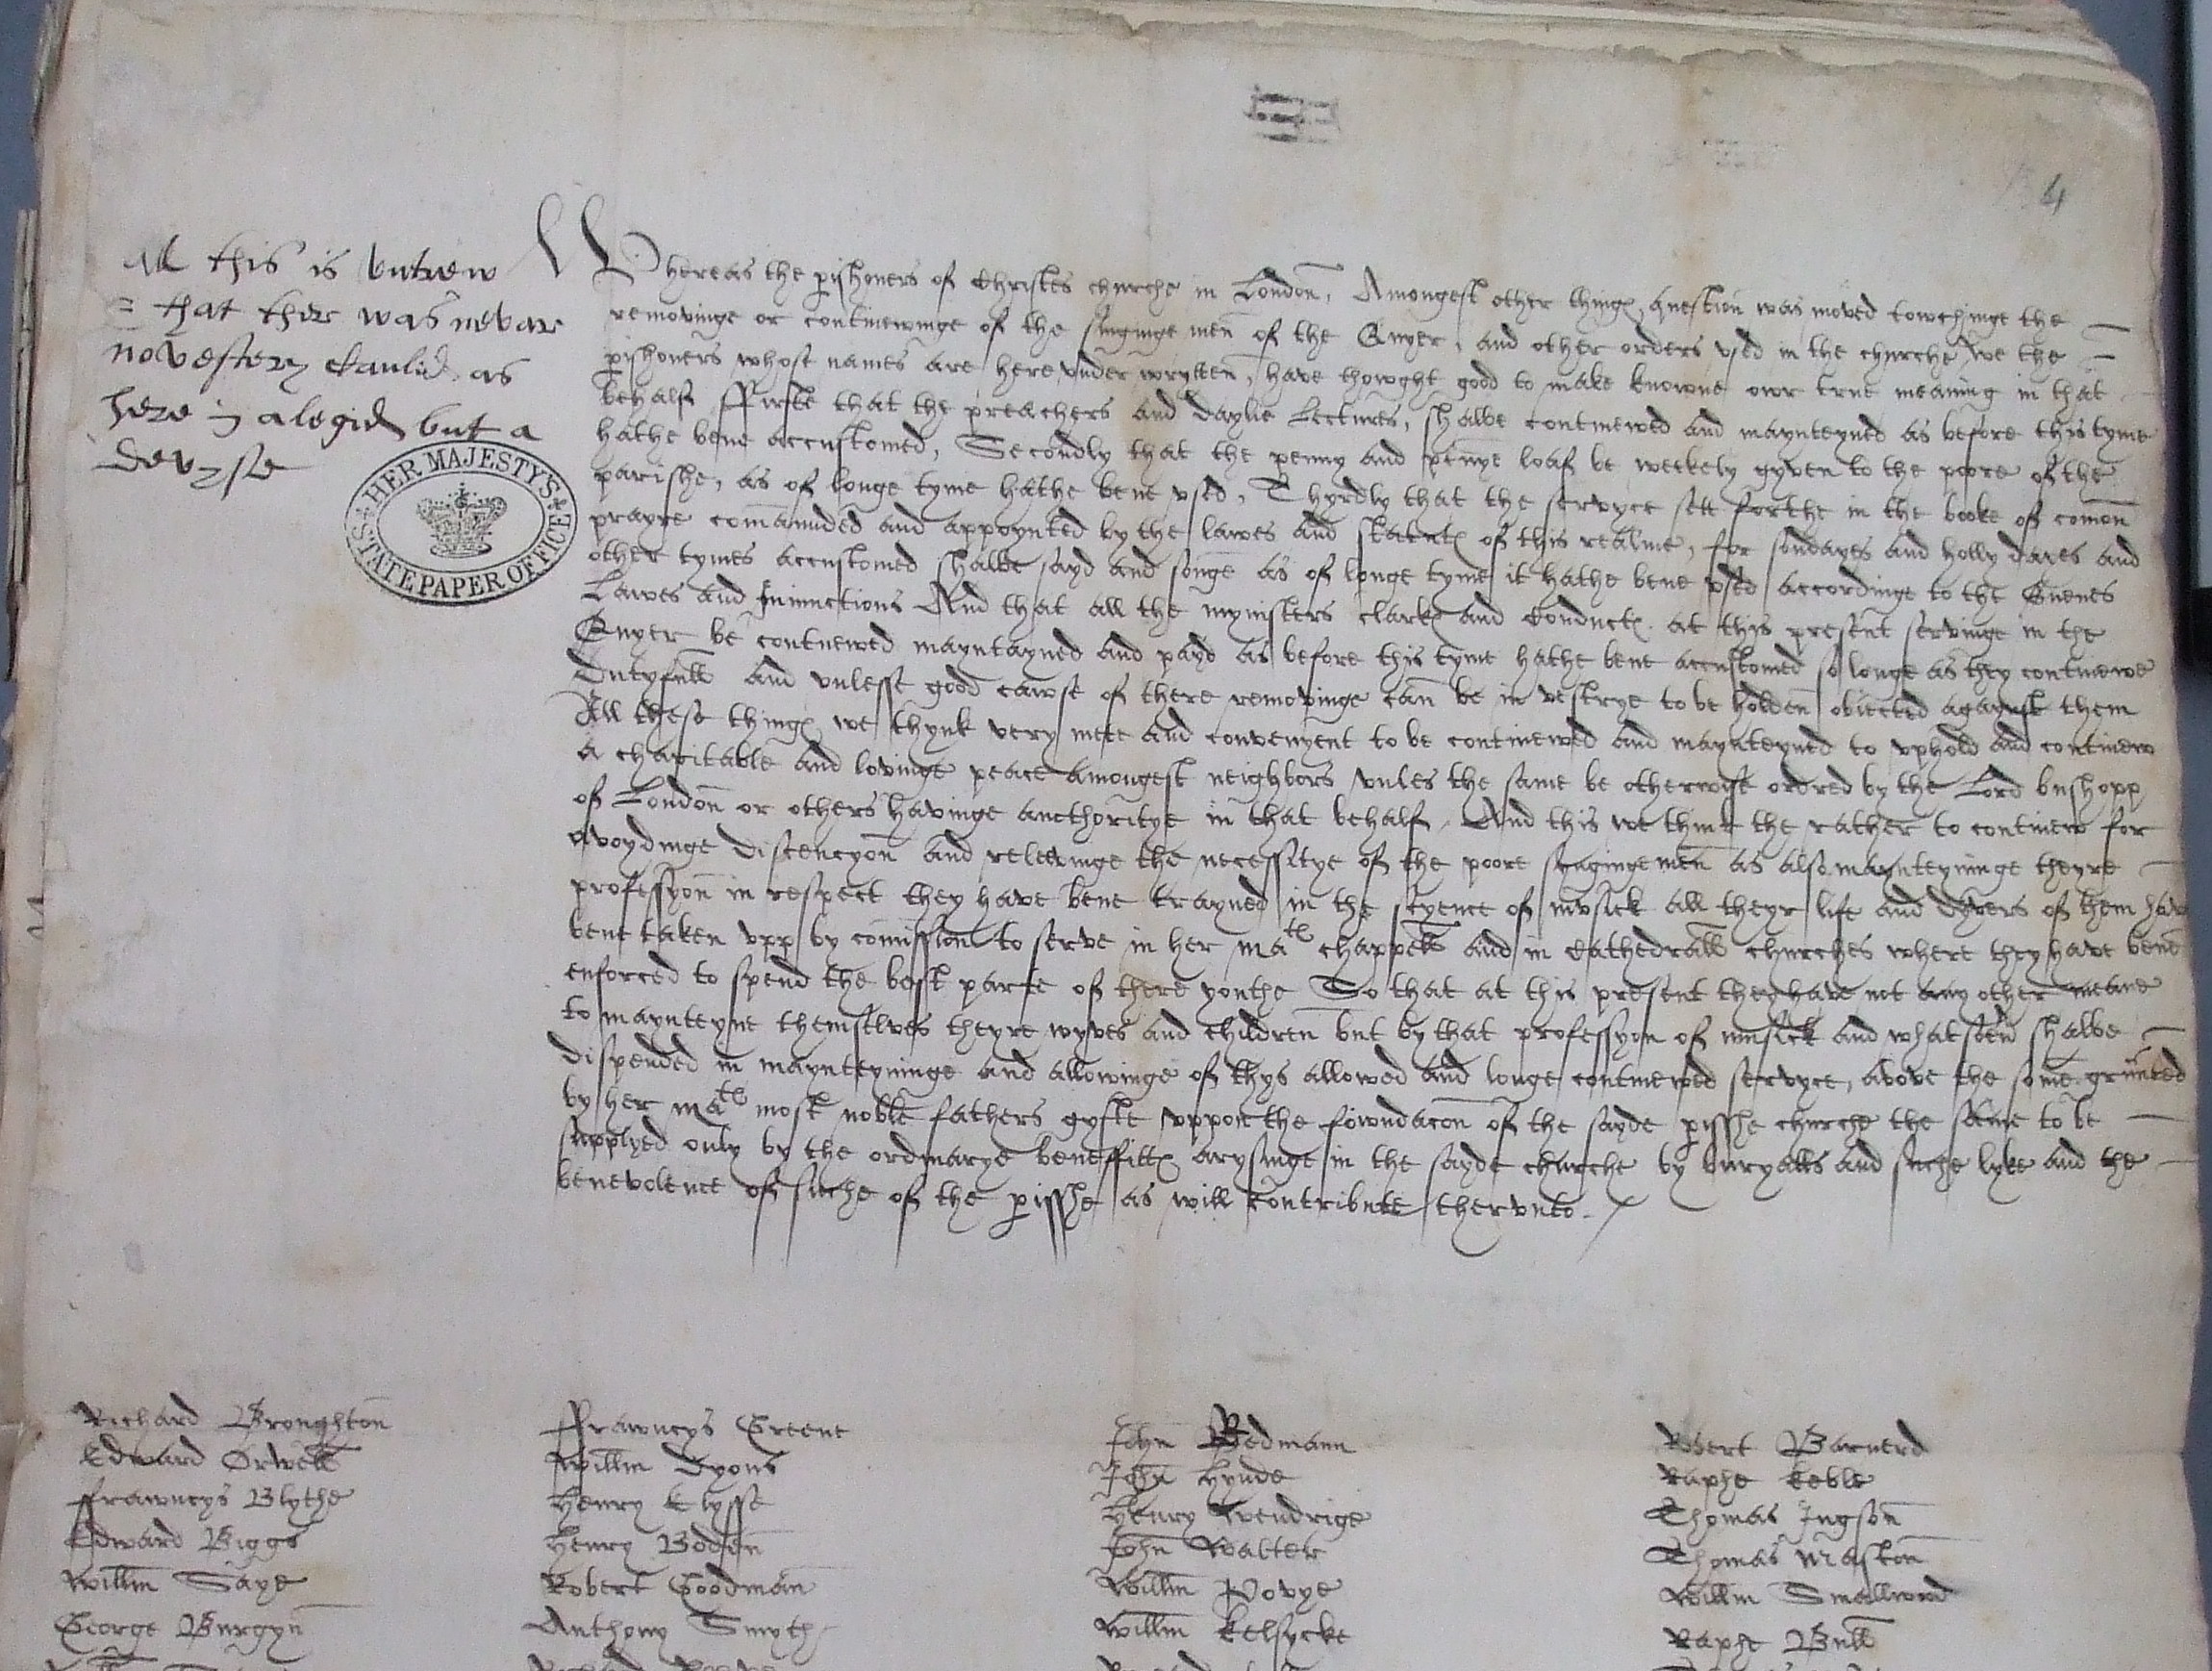 4
All this is untrew
= that ther was nevar
no vestery caulid as
here is alegid but a
devyse
HER MAJESTYS
STATE PAPER OFFICE
Whereas the pishoners of Christes churche in London, Amongest other thinges, question was moved towchinge the
removinge or continewinge of the singinge men of the Quyer, and other orders vsed in the churche, we the
pishoners whose names are here vnder wrytten, have thowght good to make knowne owr true meaning in that
behalf ffirste that the preachers and daylie Lectures, shalbe continewed and maynteyned as before this tyme
hathe bene accustomed, Secondly that the penny and pennye loaf be weekely gyven to the poore of the
parishe, as of longe tyme hathe bene vsed, Thyrdly that the servyce sett forthe in the booke of comon
prayre comaunded and appoynted by the lawes and statutes of this realme, for sondayes and holly dayes and
other tymes accustomed shalbe sayd and songe as of longe tyme it hathe bene vsed accordinge to the Quenes
Lawes and Iniunctions And that all the mynisters clarkes and Conductes at this present servinge in the
Quyer be contnewed mayntayned and payd as before this tyme hathe bene accustomed so longe as they continewe
Dutyfull and vnlesse good cawse of there removinge can be in vestrye to be holden obiected agaynst them
All these thinges we thynk very mete and convenyent to be continewed and maynteyned to vphold and continew
a charitable and lovinge peace amongest neighbors vnles the same be otherwise ordred by the Lord busshopp
of London or others havinge aucthoritye in that behalf, And this we think the rather to continew for
avoydinge discencyon and relevinge the necessitye of the poore syngingemen as also maynteyninge theyre
professyon in respect they have bene trayned in the scyence of musick all theyr life and dyvers of them have
bene taken vpp by comission to serve in her ma^tes chappell and in Cathedrall churches where they have bene
enforced to spend the best parte of there youthe So that at this present they have not any other meane
to maynteyne themselves theyre wyves and children but by that professyon of musick and whatsoever shalbe
dispended in maynteyninge and allowinge of thys allowed and longe continewed servyce, above the some grunted
by her ma^tes most noble fathers gyfte vppon the fowndacon of the sayde pisshe churche the same to be
supplyed only by the ordinarye beneffittes arysinge in the sayde churche by buryalls and suche lyke and the
benevolence of suche of the pisshe as will contribute thervnto
Richard Broughton
Edward Orwell
ffrauncys Blythe
Edward Biggs
Willm Saye
George Burgyn
ffrauncys Greene
Willm Dyons
Henry Elysse
Henry Bodon
Robert Goodman
Anthony Smyth
John Bedmann
John Hynde
Henry Wendrige
John Walter
Willm Povye
Willm Kelsycke
Robert Barnerd
Raphe Keble
Thomas Ingson
Thomas Maston
Willm Smallwood
Raphe Bull